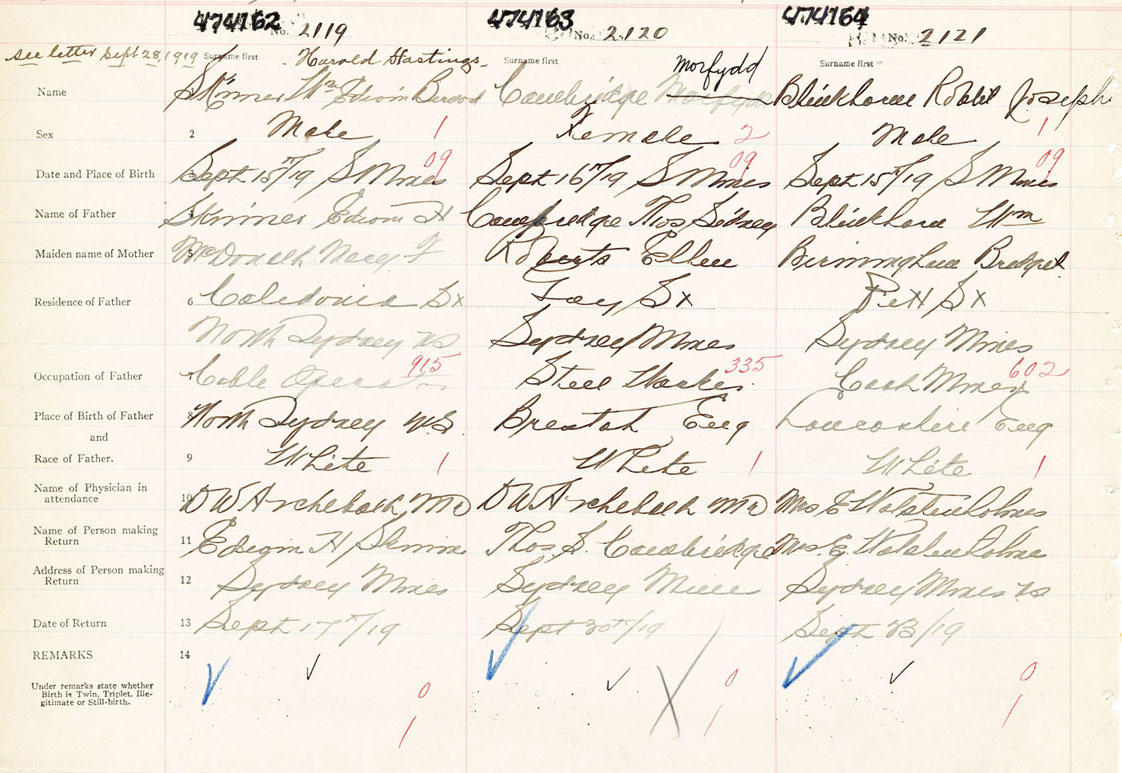 474762 474763 474764
No. 2119 No. 2120 No. 2121
see letter Sept 28, 1919 Surname first Harold Hastings Surname first Morfydd Surname first
Name 1 Skinner Wm Edwin Cowbridge Morfydd Blinkhorn Robt Joseph
Sex 2 Male 1 Female 2 Male 1
09 09 09
Date and Place of Birth 3 Sept 15th/19 S Mines Sept 16th/19 S Mines Sept 15th/19 S Mines
Name of Father 4 Skinner Edwin H Cowbridge Thos Sidney Blinkhorn Wm
Maiden name of Mother 5 McDonald Mary F Roberts Ellen Birmingham Bridget
Residence of Father 6 Caledonia St Fay St Pitt St
North Sydney NS Sydney Mines Sydney Mines
915 335 602
Occupation of Father 7 Cable Operator Steel Worker Coal Miner
Place of Birth of Father 8 North Sydney N.S. Eng Lancashire Eng
and
Race of Father. 9 White 1 White 1 White 1
Name of Physician in
attendance 10 DW Archibald, MD DW Archibald MD Mrs E
Name of Person making
Return 11 Edwin H Skinner Thos S. Cowbridge Mrs. E.
Address of Person making
Return 12 Sydney Mines Sydney Mines Sydney Mines NS
Date of Return 13 Sept 17th/19 Sept 30th/19 Sept 23/19
REMARKS 14
Under remarks state whether
Birth is Twin, Triplet, Ille-
gitimate or Still-birth.
0 0 0
1 1 1